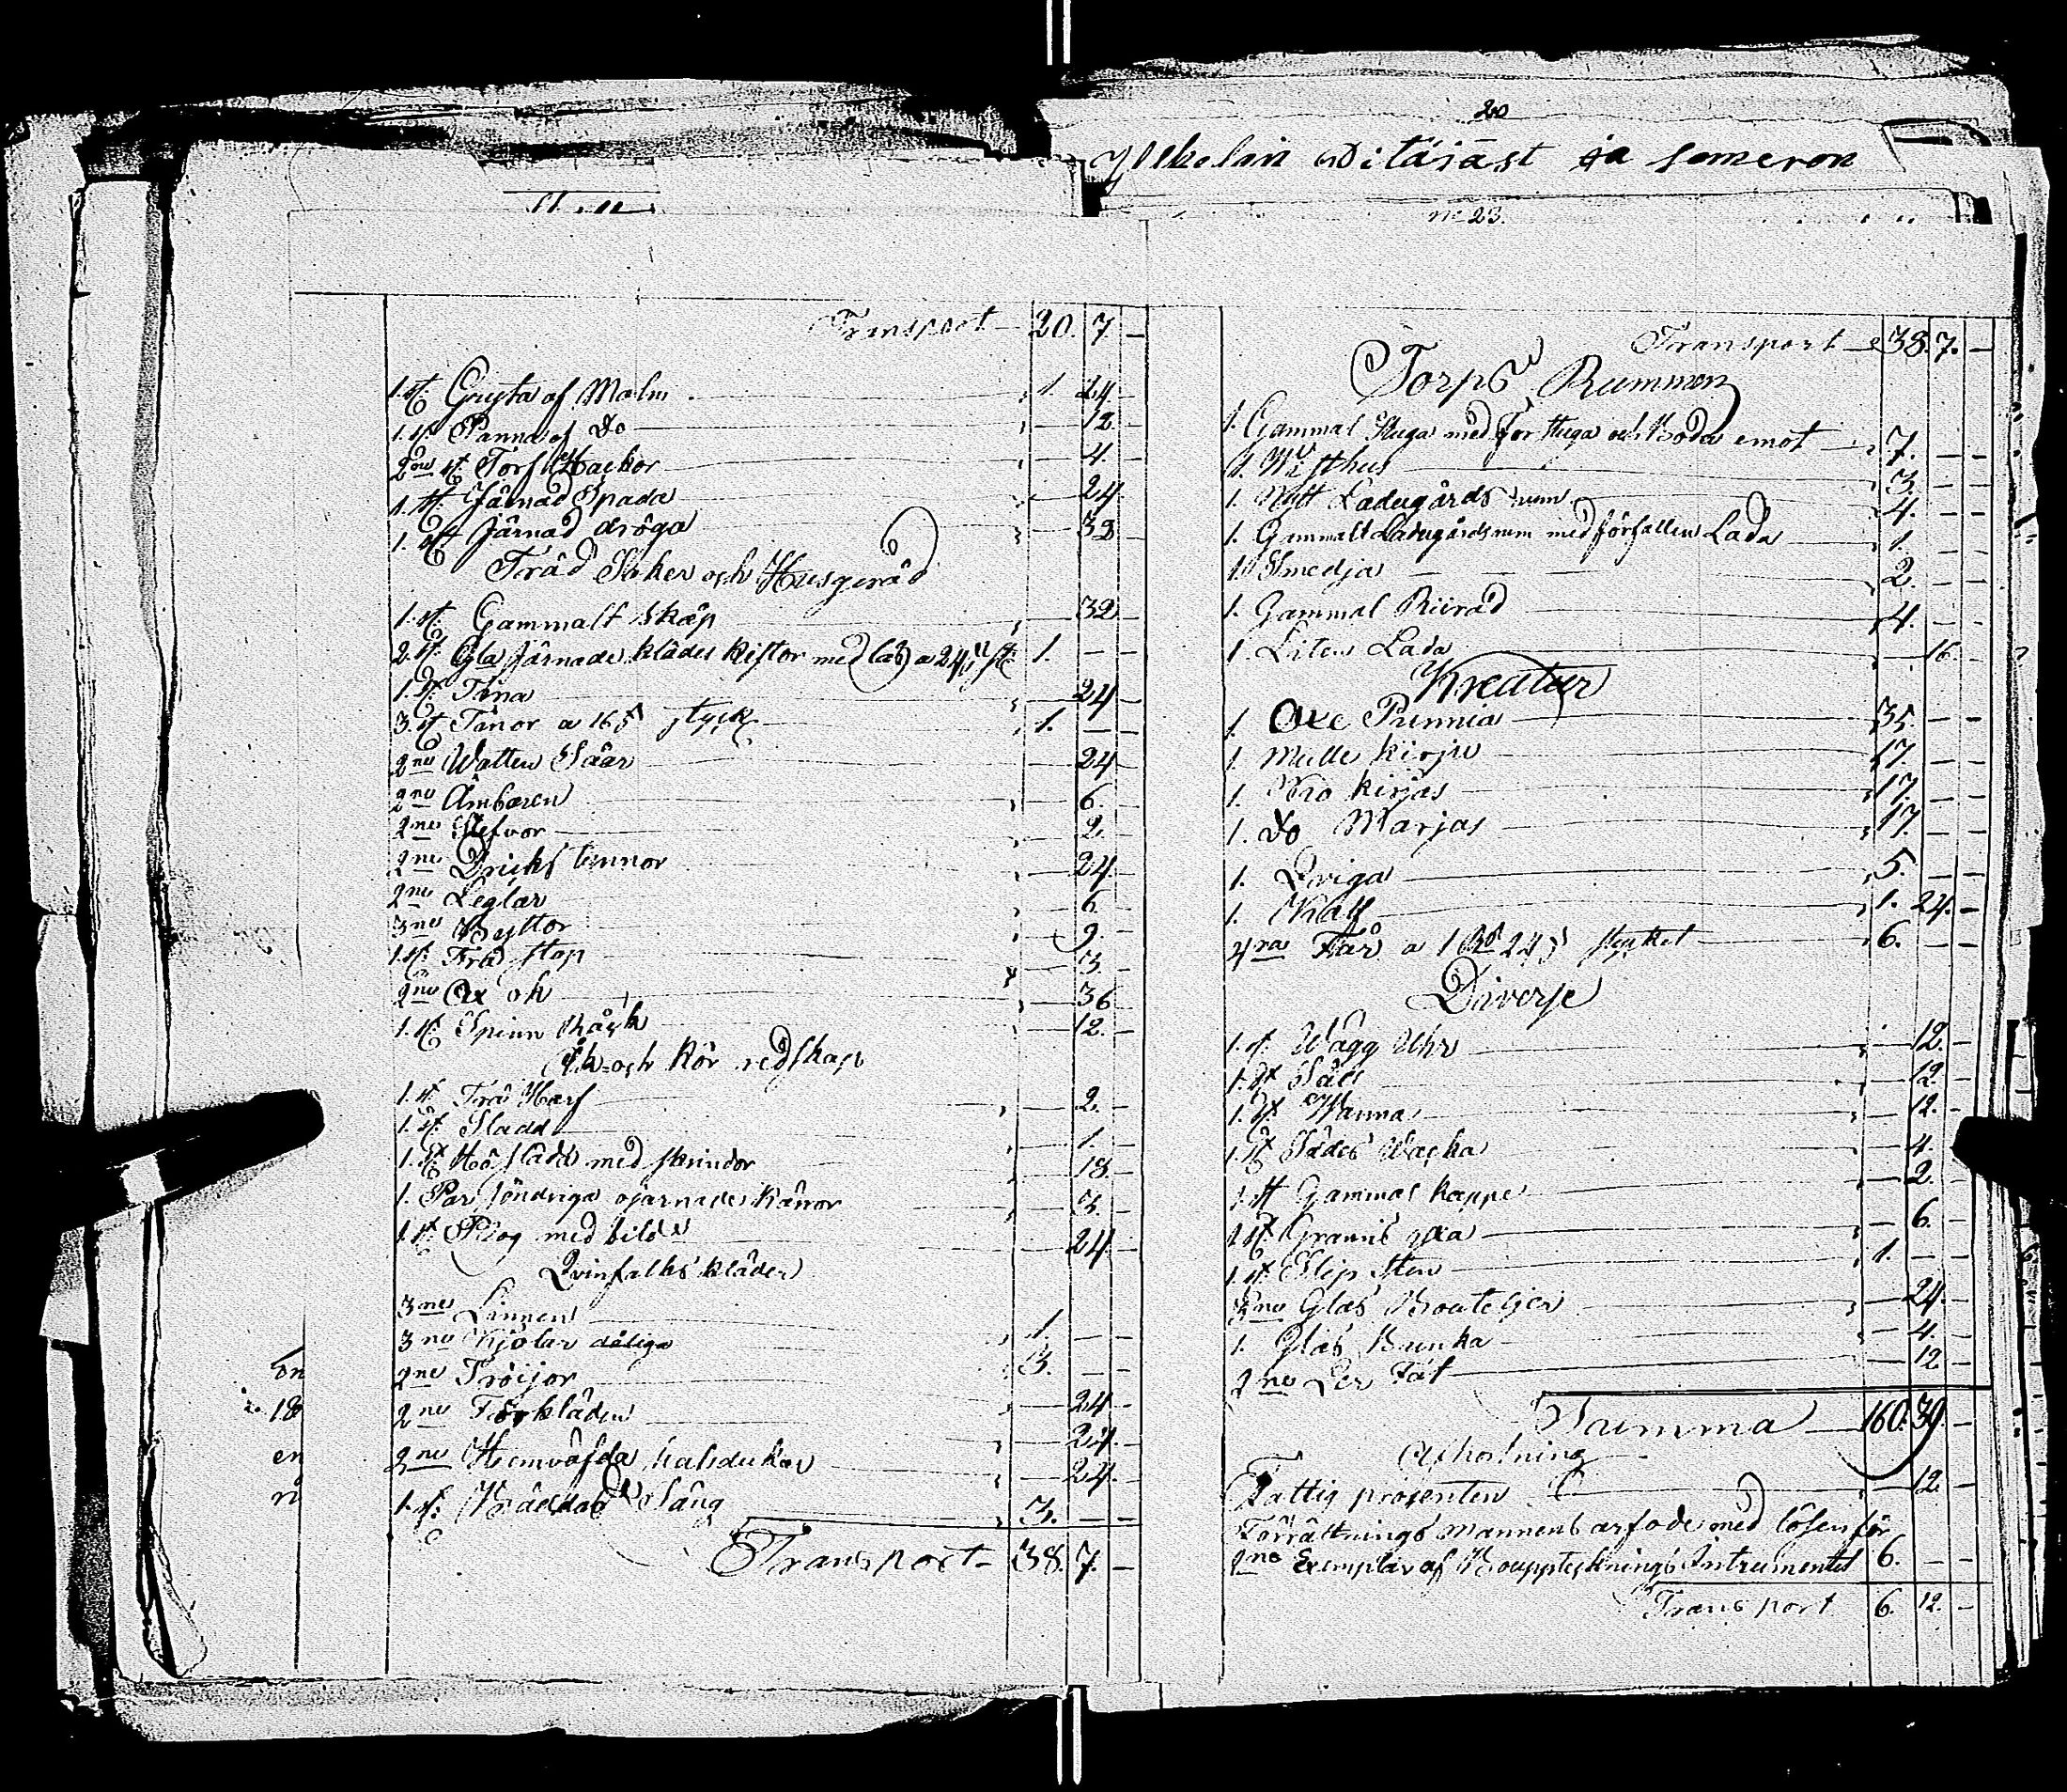 20
Pitäjäst ja someron
no 23.
Transport 20. 7. —
1. st. Gryta af Malm 1. 24. —
1. st. Panna af do — 12. —
2ne st Torf Hackor — 4. —
1. st. Järnad Spada — 24 —
1. st Järnad dröga — 32 —
Träd Saker och Husgeråd
1. st. Gammalt skåp — 32 —
2. st. Gla Järnade klädes kistor med lås a 24 s st 1. — —
1. st. Tina — 24 —
3. st Tinor a 16 s styck 1. — —
2ne Watten Såar — 24 —
2ne Ämbaren — 6. —
2ne Stefvor — 2. —
2ne Dricks tunnor — 24. —
2ne Leglar — 6. —
3ne Byttor — 9. —
1. st. Trä stop — 3 —
2ne Ox ok — 36 —
1. st. Spinn Råck — 12. —
Åk- och Kör redskap
1. st. Trä Harf — 2. —
1. st. Sladd — 1. —
1. st Hö slåda med skrindor — 18. —
1. Par söndriga ojarnade Kärror — 3. —
1. st. Plog med bilar — 24 —
Qvinfolks kläder
3ne Linnen 1. — —
3ne Kjolar dåliga 3. — —
2ne Tröijor — 24 —
2ne Förkläden — 24. —
2ne Hemväfda halsdukar — 24. —
1. st: Bäddad Säng 3. — —
Transport 38. 7. —
Transport 38. 7. —
Torps Rummen
1. Gammal Stuga med förstuga och Boda emot 7. — —
1. Wisthus 3 — —
1. Nytt Ladugårds rum 4. — —
1. Gammalt Ladugårdsrum med förfallen Lada 1. — —
1. Smedja 2. — —
1. Gammal Riiråd 4 — —
1. Liten Lada — 16. —
Kreatur
1. Oxe Punnia 35. — —
1. Mulle Kirju 17. — —
1. Ko Kirjas 17 — —
1. do Marjas 17. — —
1. Qviga 5. — —
1. Kalf 1. 24. —
4ra Får a 1 Rd 24 s stycket 6. — —
Diverse
1. st. Wägg Uhr — 12. —
1. st Såll — 12. —
1. st Wanna — 12. —
1. st Sädes Wacka — 4. —
1. st Gammal kappe — 2. —
1. st Granris yxa — 6. —
1. st. Slip Sten 1. — —
3ne Glas Bouteljer — 24. —
1. Glas Bunka — 4. —
2ne Ler Fat — 12 —
Summa 160. 39 —
Afkortning
Fattig prosenten — 12. —
Förrättnings mannens arfode med lösen för
2ne Exemplar af Bouppteknings Intrumentet 6. — —
Transport 6. 12. —
ön
18
en